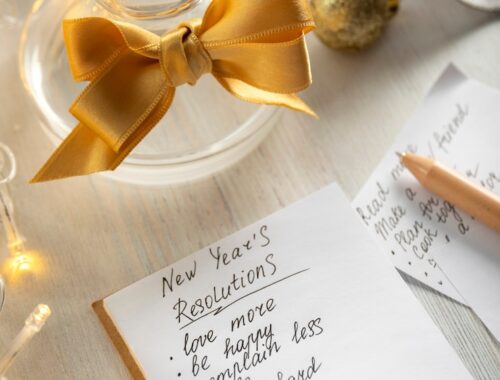 New Year's
Resolutions
· love more
· be happy
complain less
hard
Read more
· Make a / friend
· Plan for
· Cook
· a